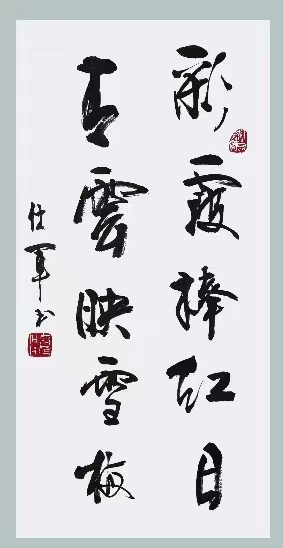 彩霞捧红日
青雲映雪梅
仕军书